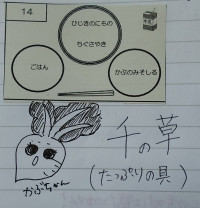 14
ひじきのにもの
ちぐさやき
ごはん
かぶのみそしる
千の草
(たっぷりの具)
かぶちゃん